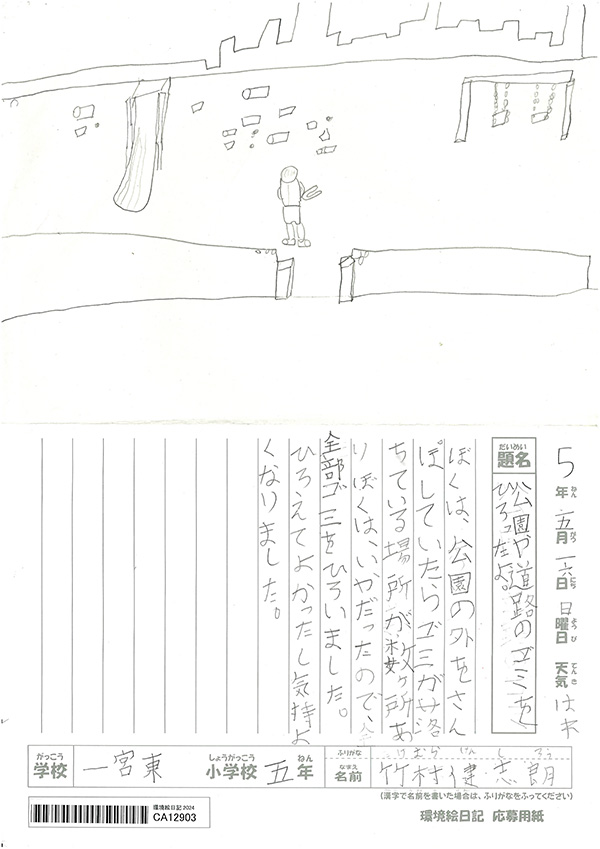 5年 五月 一六日 日曜日 天気 はれ
ねん がつ にち ようび てんき
だいめい
題名
公園や道路のゴミを
ひろったよ。
ぼくは、公園の外をさん
ぽしていたらゴミが落
ちている場所が数ヶ所あ
りぼくは、いやだったので、
全部ゴミをひろいました。
ひろえてよかったし気持よ
くなりました。
がっこう
学校
一宮東
しょうがっこう
小学校
五年
ねん
ふりがな
けむら けん し ろう
なまえ
名前
竹村健志朗
(漢字で名前を書いた場合は、ふりがなをふってください)
環境絵日記2024
CA12903
環境絵日記 応募用紙